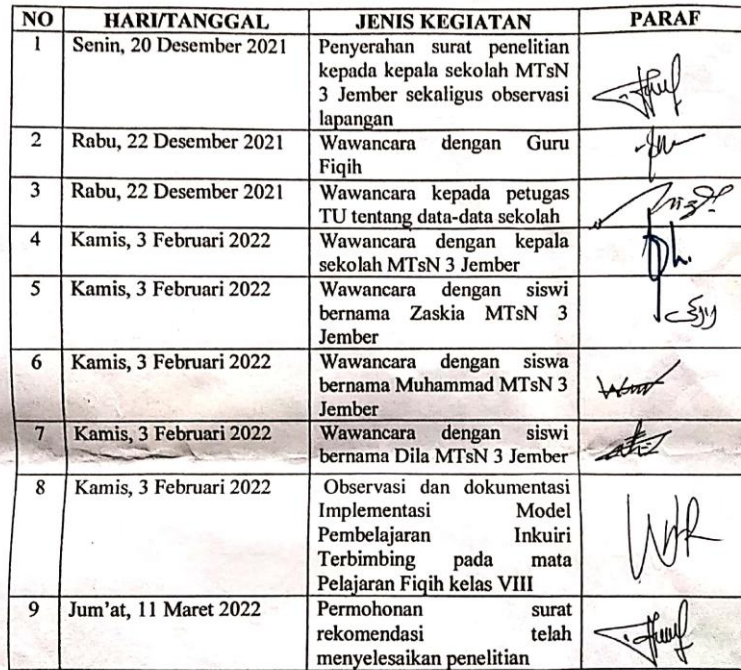 NO HARI/TANGGAL JENIS KEGIATAN PARAF
1 Senin, 20 Desember 2021 Penyerahan surat penelitian
kepada kepala sekolah MTsN
3 Jember sekaligus observasi
lapangan
2 Rabu, 22 Desember 2021 Wawancara dengan Guru
Fiqih
3 Rabu, 22 Desember 2021 Wawancara kepada petugas
TU tentang data-data sekolah
4 Kamis, 3 Februari 2022 Wawancara dengan kepala
sekolah MTsN 3 Jember
5 Kamis, 3 Februari 2022 Wawancara dengan siswi
bernama Zaskia MTsN 3
Jember
6 Kamis, 3 Februari 2022 Wawancara dengan siswa
bernama Muhammad MTsN 3
Jember
7 Kamis, 3 Februari 2022 Wawancara dengan siswi
bernama Dila MTsN 3 Jember
8 Kamis, 3 Februari 2022 Observasi dan dokumentasi
Implementasi Model
Pembelajaran Inkuiri
Terbimbing pada mata
Pelajaran Fiqih kelas VIII
9 Jum'at, 11 Maret 2022 Permohonan surat
rekomendasi telah
menyelesaikan penelitian